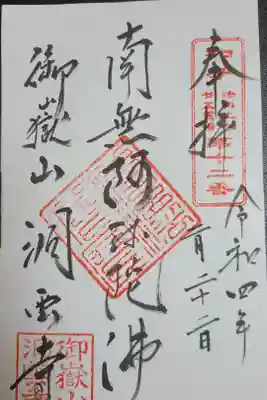 奉拝
第十二番
令和四年
二月二十二日
南無阿弥陀佛
御嶽山
洞雲寺
御嶽山
洞雲寺